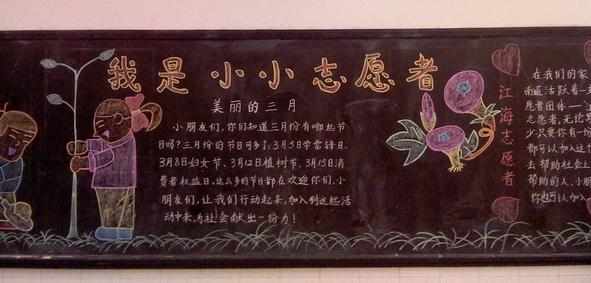 我是小小志愿者
美丽的三月
小朋友们，你们知道三月份有哪些节
日吗？三月份的节日可多了，3月5日学雷锋日，
3月8日妇女节，3月12日植树节，3月15日消
费者权益日，这么多的节日都在欢迎你们，小
朋友们，让我们行动起来，加入到这些活
动中来，为社会献出一份力！
江海志愿者
在我们的家
南通活跃着一支
愿者团体——江
之愿者，无论是
少只要你有一份
都可以加入这个
去帮助社会上
帮助的人，小朋
你也可以加入